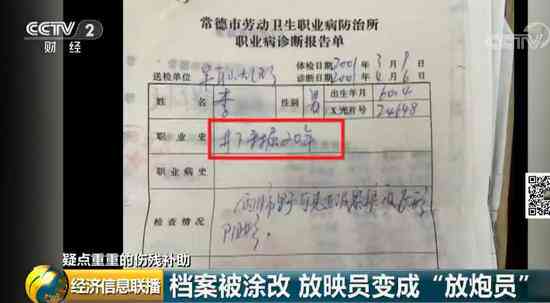 CCTV 2
财经
常德市劳动卫生职业病防治所
职业病诊断报告单
体检日期2001年3月9日
送检单位 诊断日期2001年4月6日
姓名 李 性别 男 出生年月 60.4
X光片号 24698
职业史 井下采掘20年
职业病史
检查情况
疑点重重的伤残补助
经济信息联播 档案被涂改 放映员变成“放炮员”